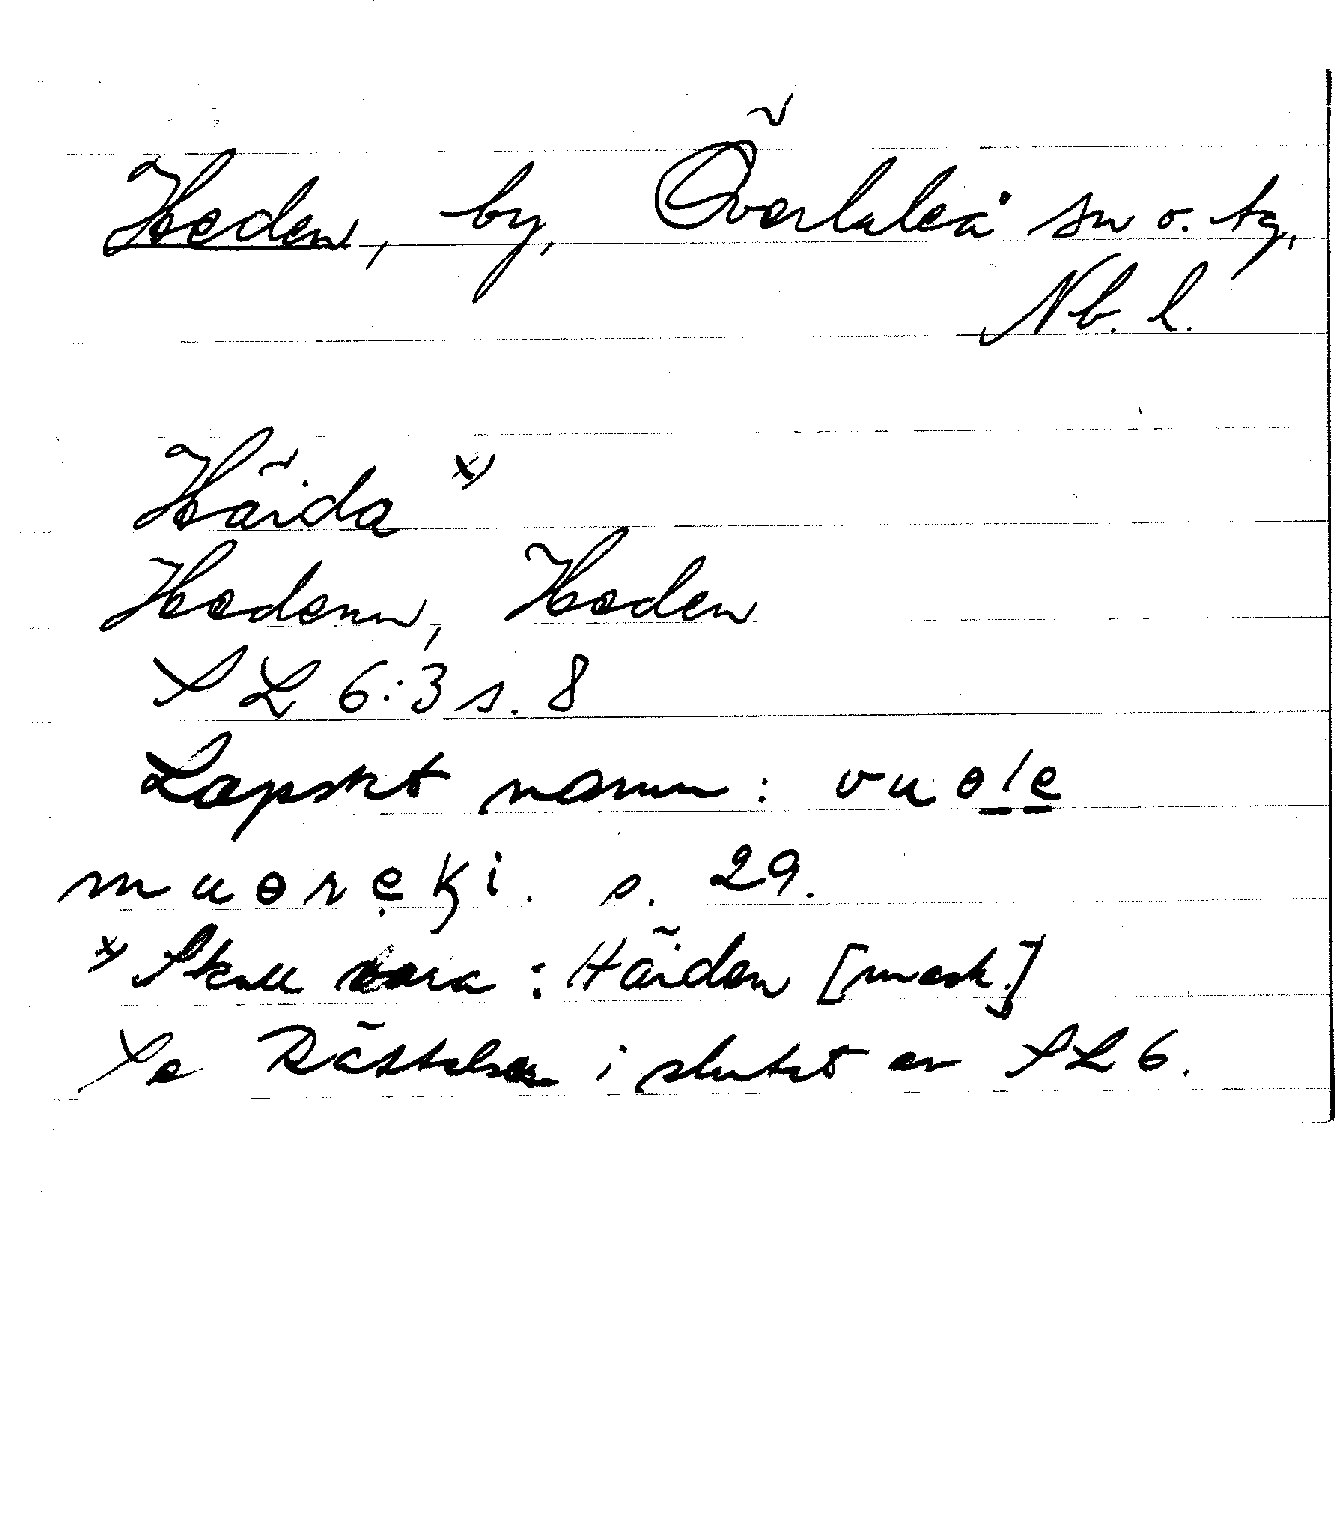 Heden, by, Överluleå sn o. tg,
Nb. l.
Häida x)
Hedenn, Heden
SL 6:3 s. 8
Lapskt namn: vuo̲l̲e̲
muorẹḱi. s. 29.
x) Skall vara: Häiden [mask.]
Se Rättelser i slutet av SL 6.